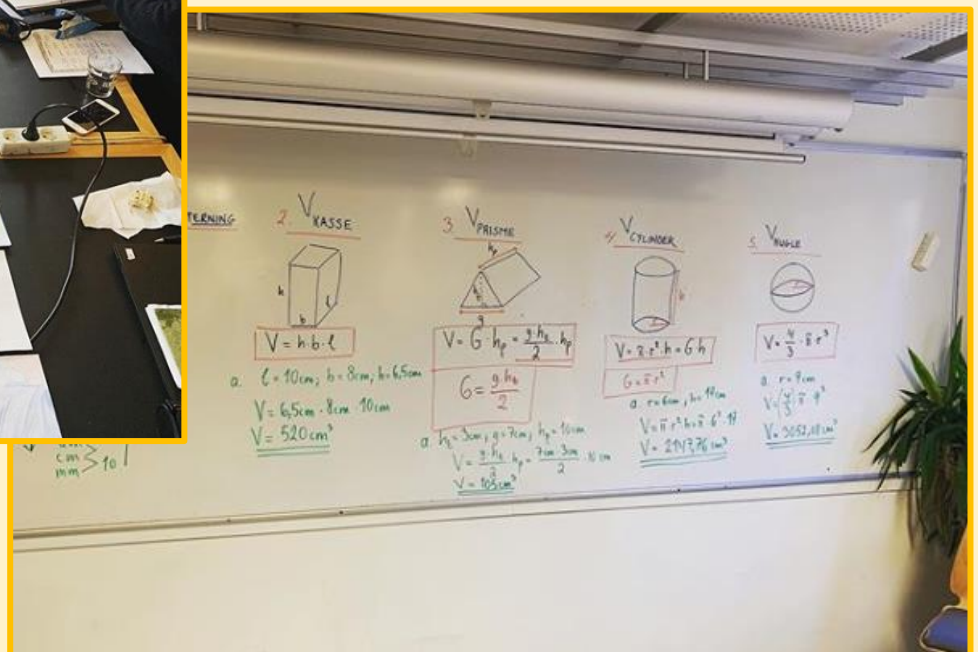 TERNING
2. V KASSE
h
b
l
V = h·b·l
a. l = 10cm; b = 8cm; h = 6,5cm
V = 6,5cm · 8cm · 10cm
V = 520cm³
3. V PRISME
hp
g
V = G·hp = g·ht/2 · hp
G = g·ht/2
a. ht = 3cm; g = 7cm; hp = 10cm
V = g·ht/2 · hp = 7cm·3cm/2 · 10cm
V = 105cm³
4. V CYLINDER
h
V = π·r²·h = G·h
G = π·r²
a. r = 6cm, h = 19cm
V = π·r²·h = π·6²·19
5. V KUGLE
V = 4/3 · π·r³
a. r = 9cm
cm
mm
10